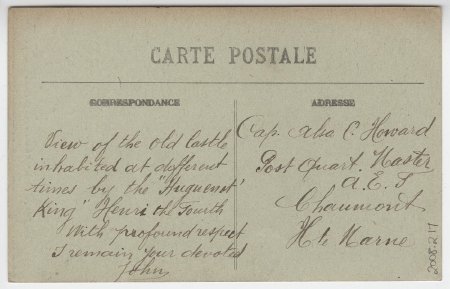 CARTE POSTALE
CORRESPONDANCE
View of the old castle
inhabited at different
times by the "Huguenot
King" Henri the Fourth
With profound respect
I remain your devoted
John
ADRESSE
Cap. Alsa C. Howard
Post Quart. Master
A.E.F
Chaumont
Hte Marne
2008.2.17